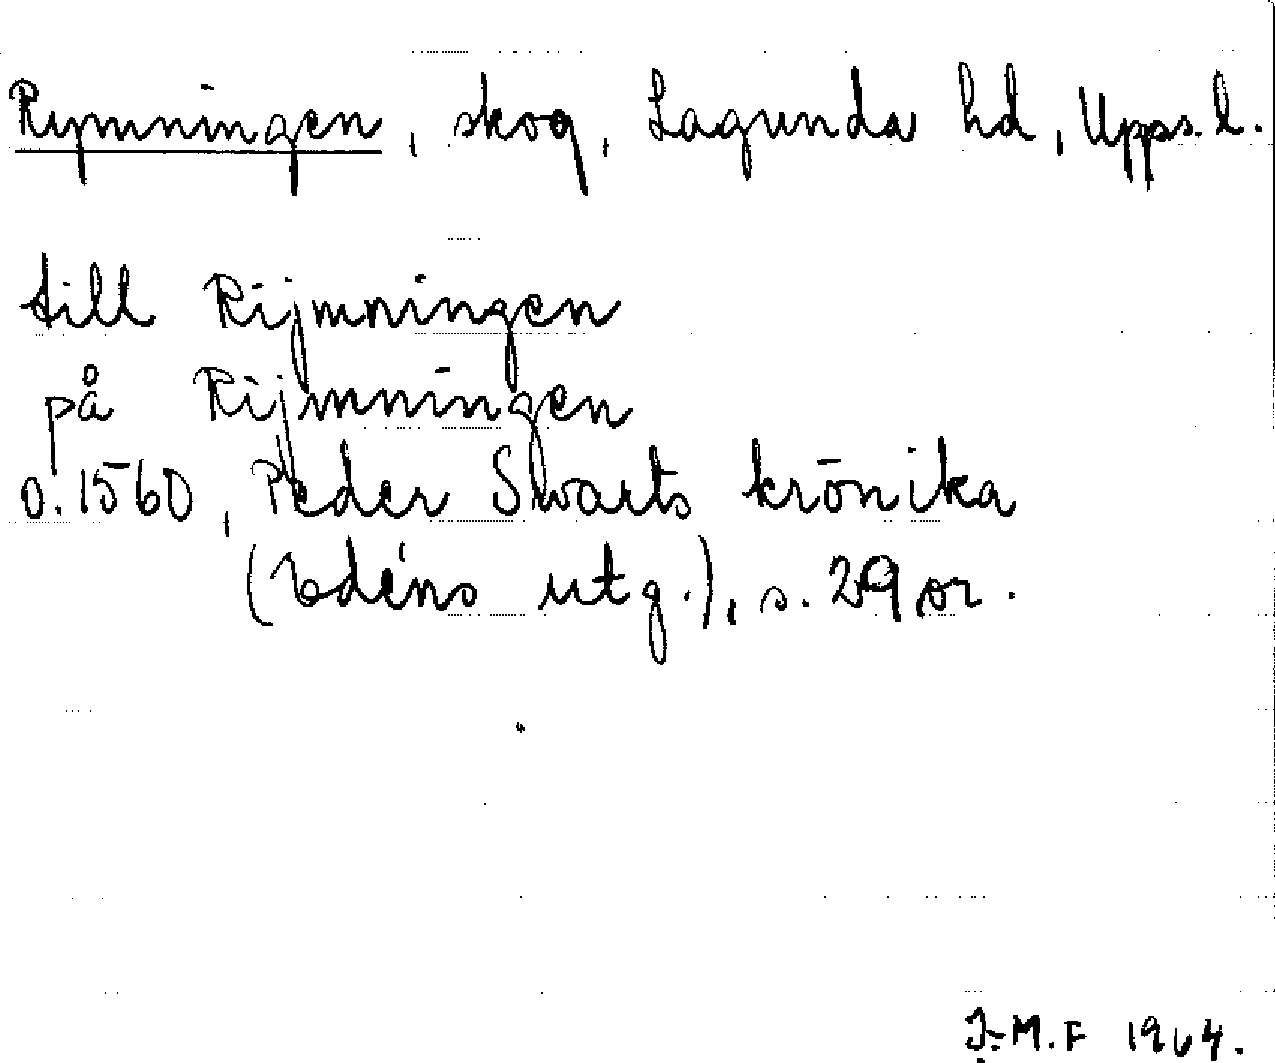 Rymningen, skog, Lagunda hd, Upps. l.
till Rijmningen
på Rijmningen
o. 1560, Peder Swarts krönika
(Edéns utg.), s. 29 or.
J-M.F 1964.